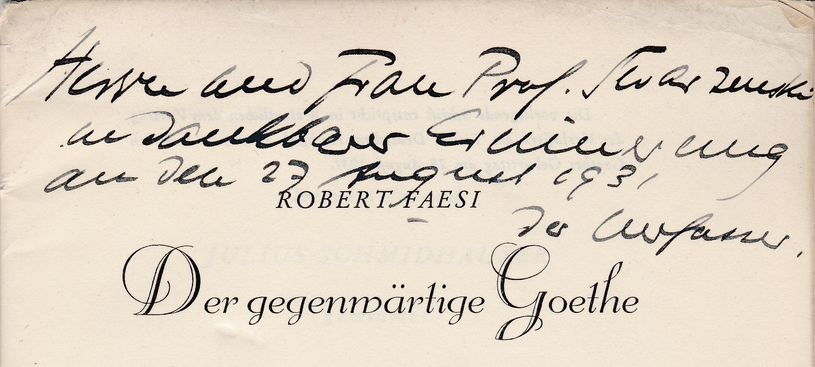 Herrn und Frau Prof. Swarzenski
in dankbarer Erinnerung
an den 27 August 1931
ROBERT FAESI
der Verfasser.
Der gegenwärtige Goethe